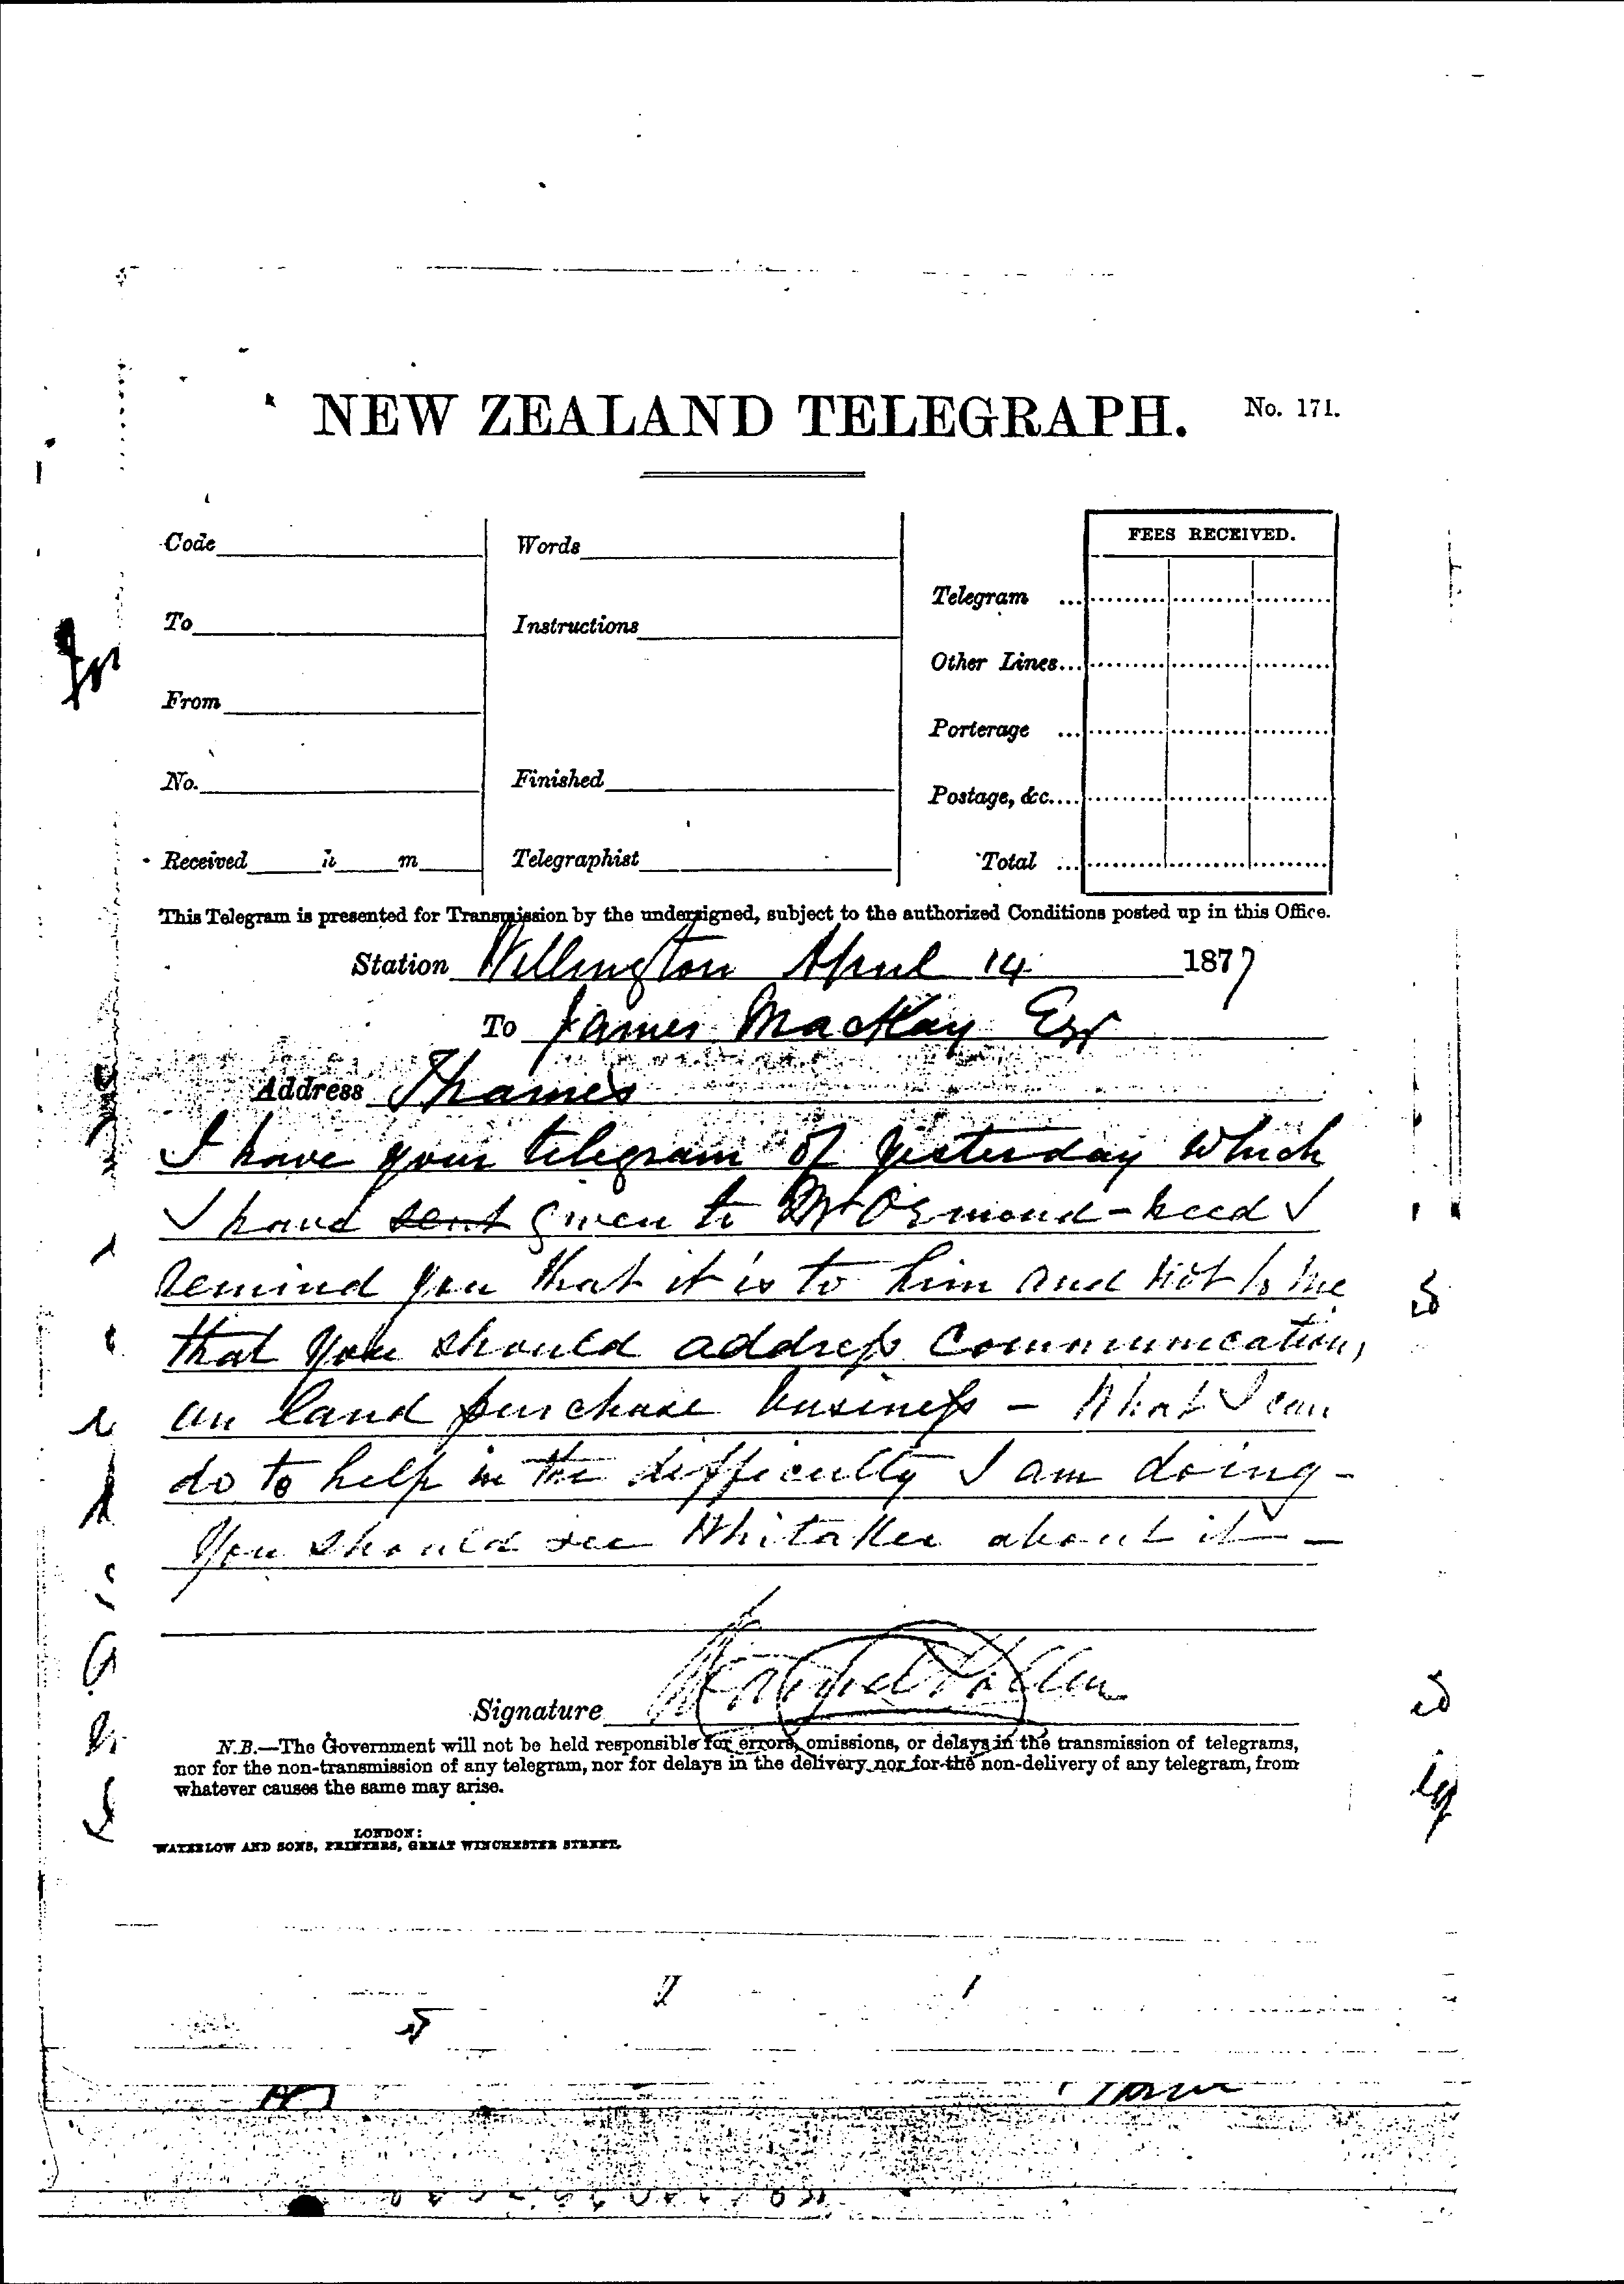 NEW ZEALAND TELEGRAPH. No. 171.
FEES RECEIVED.
Code
Words
Telegram ...
To
Instructions
Other Lines...
From
Porterage ...
No.
Finished
Postage, &c....
Received h m
Telegraphist
Total ...
This Telegram is presented for Transmission by the undersigned, subject to the authorized Conditions posted up in this Office.
Station Wellington April 14 1877
To James MacKay Esq
Address Thames
I have your telegram of yesterday which
I have sent given to Mr Ormond - need I
remind you that it is to him and not to me
that you should address communications
on land purchase business - What I can
do to help in the difficulty I am doing -
You should see Whitaker about it -
Signature Daniel Pollen
N.B.—The Government will not be held responsible for errors, omissions, or delays in the transmission of telegrams,
nor for the non-transmission of any telegram, nor for delays in the delivery nor for the non-delivery of any telegram, from
whatever causes the same may arise.
LONDON:
WATERLOW AND SONS, PRINTERS, GREAT WINCHESTER STREET.